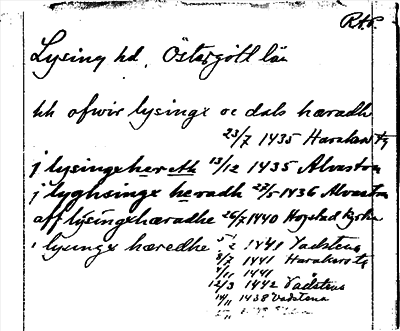 R.A.P.
Lysing hd, Östergötl län
hh ofwir lysingx oc dals hæradh
23/7 1435 Haraker
j lysingxheræth 13/12 1435 Alvastra
j lyghsingx heradh 27/5 1436 Alvastra
aff lysingxhæradhe 26/7 1440 Hogstad kyrka
i lysingx hæredhe 1441 Vadstena
8/7 1441
/11 1441
12/3 1442 Vadstena
14/11 1438 Vadstena